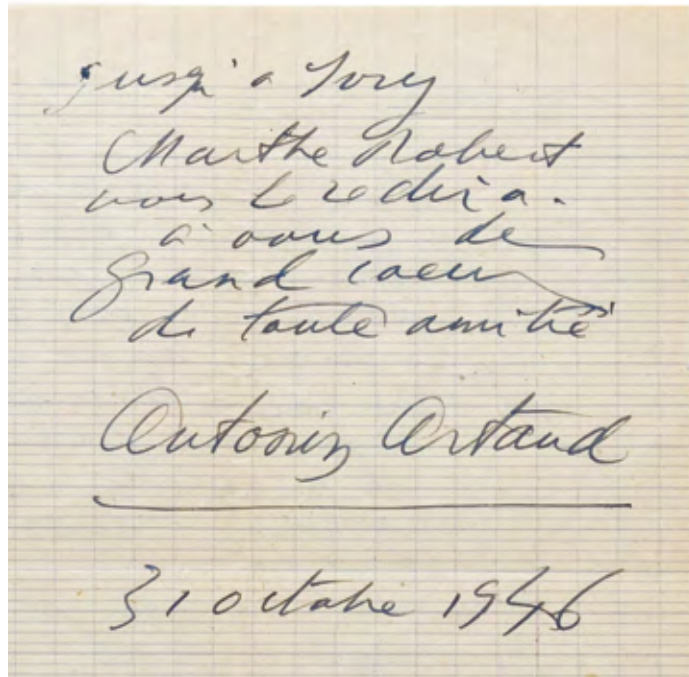 jusqu'a Ivry
Marthe Robert
vous le redira.
à vous de
grand coeur
de toute amitié
Antonin Artaud
31 octobre 1946